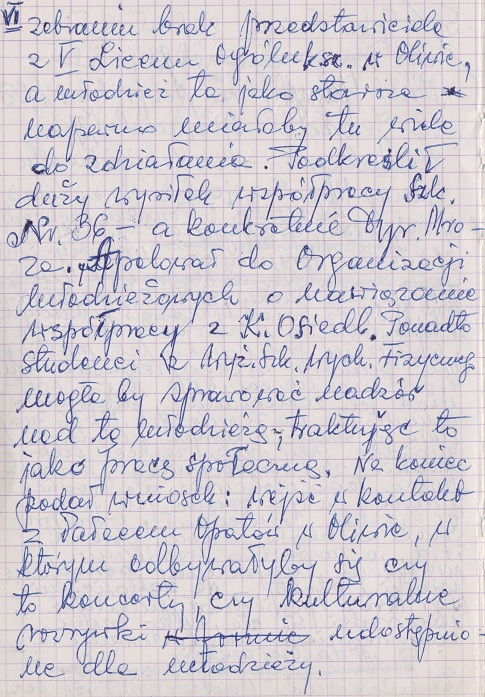 VI
zebraniu brak przedstawiciela
z V Liceum Ogólnksz. w Oliwie,
a młodzież ta jako starsza
napewno miałaby tu wiele
do zdziałania. Podkreślił
duży wysiłek współpracy Szk.
Nr. 36 – a konkretnie Dyr. Mro-
za. Apelował do Organizacji
Młodzieżowych o nawiązanie
współpracy z K. Osiedl. Ponadto
studenci z Wyż. Szk. Wych. Fizyczneg
mogła by sprawować nadzór
nad tą młodzieżą, traktując to
jako pracę społeczną. Na koniec
podał wniosek: wejść w kontakt
z Pałacem Opatów w Oliwie, w
którym odbywałyby się czy
to koncerty, czy kulturalne
rozrywki udostępnio-
ne dla młodzieży.